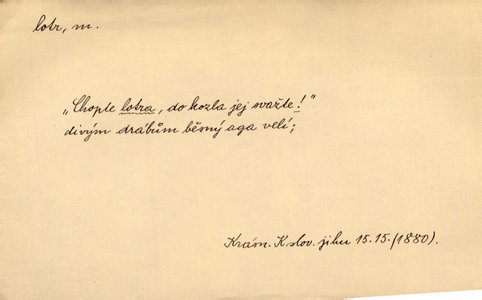 lotr, m.
„Chopte lotra, do kozla jej svažte!"
divým drábům běsný aga velí;
Krám. K slov. jihu 15.15.(1880).